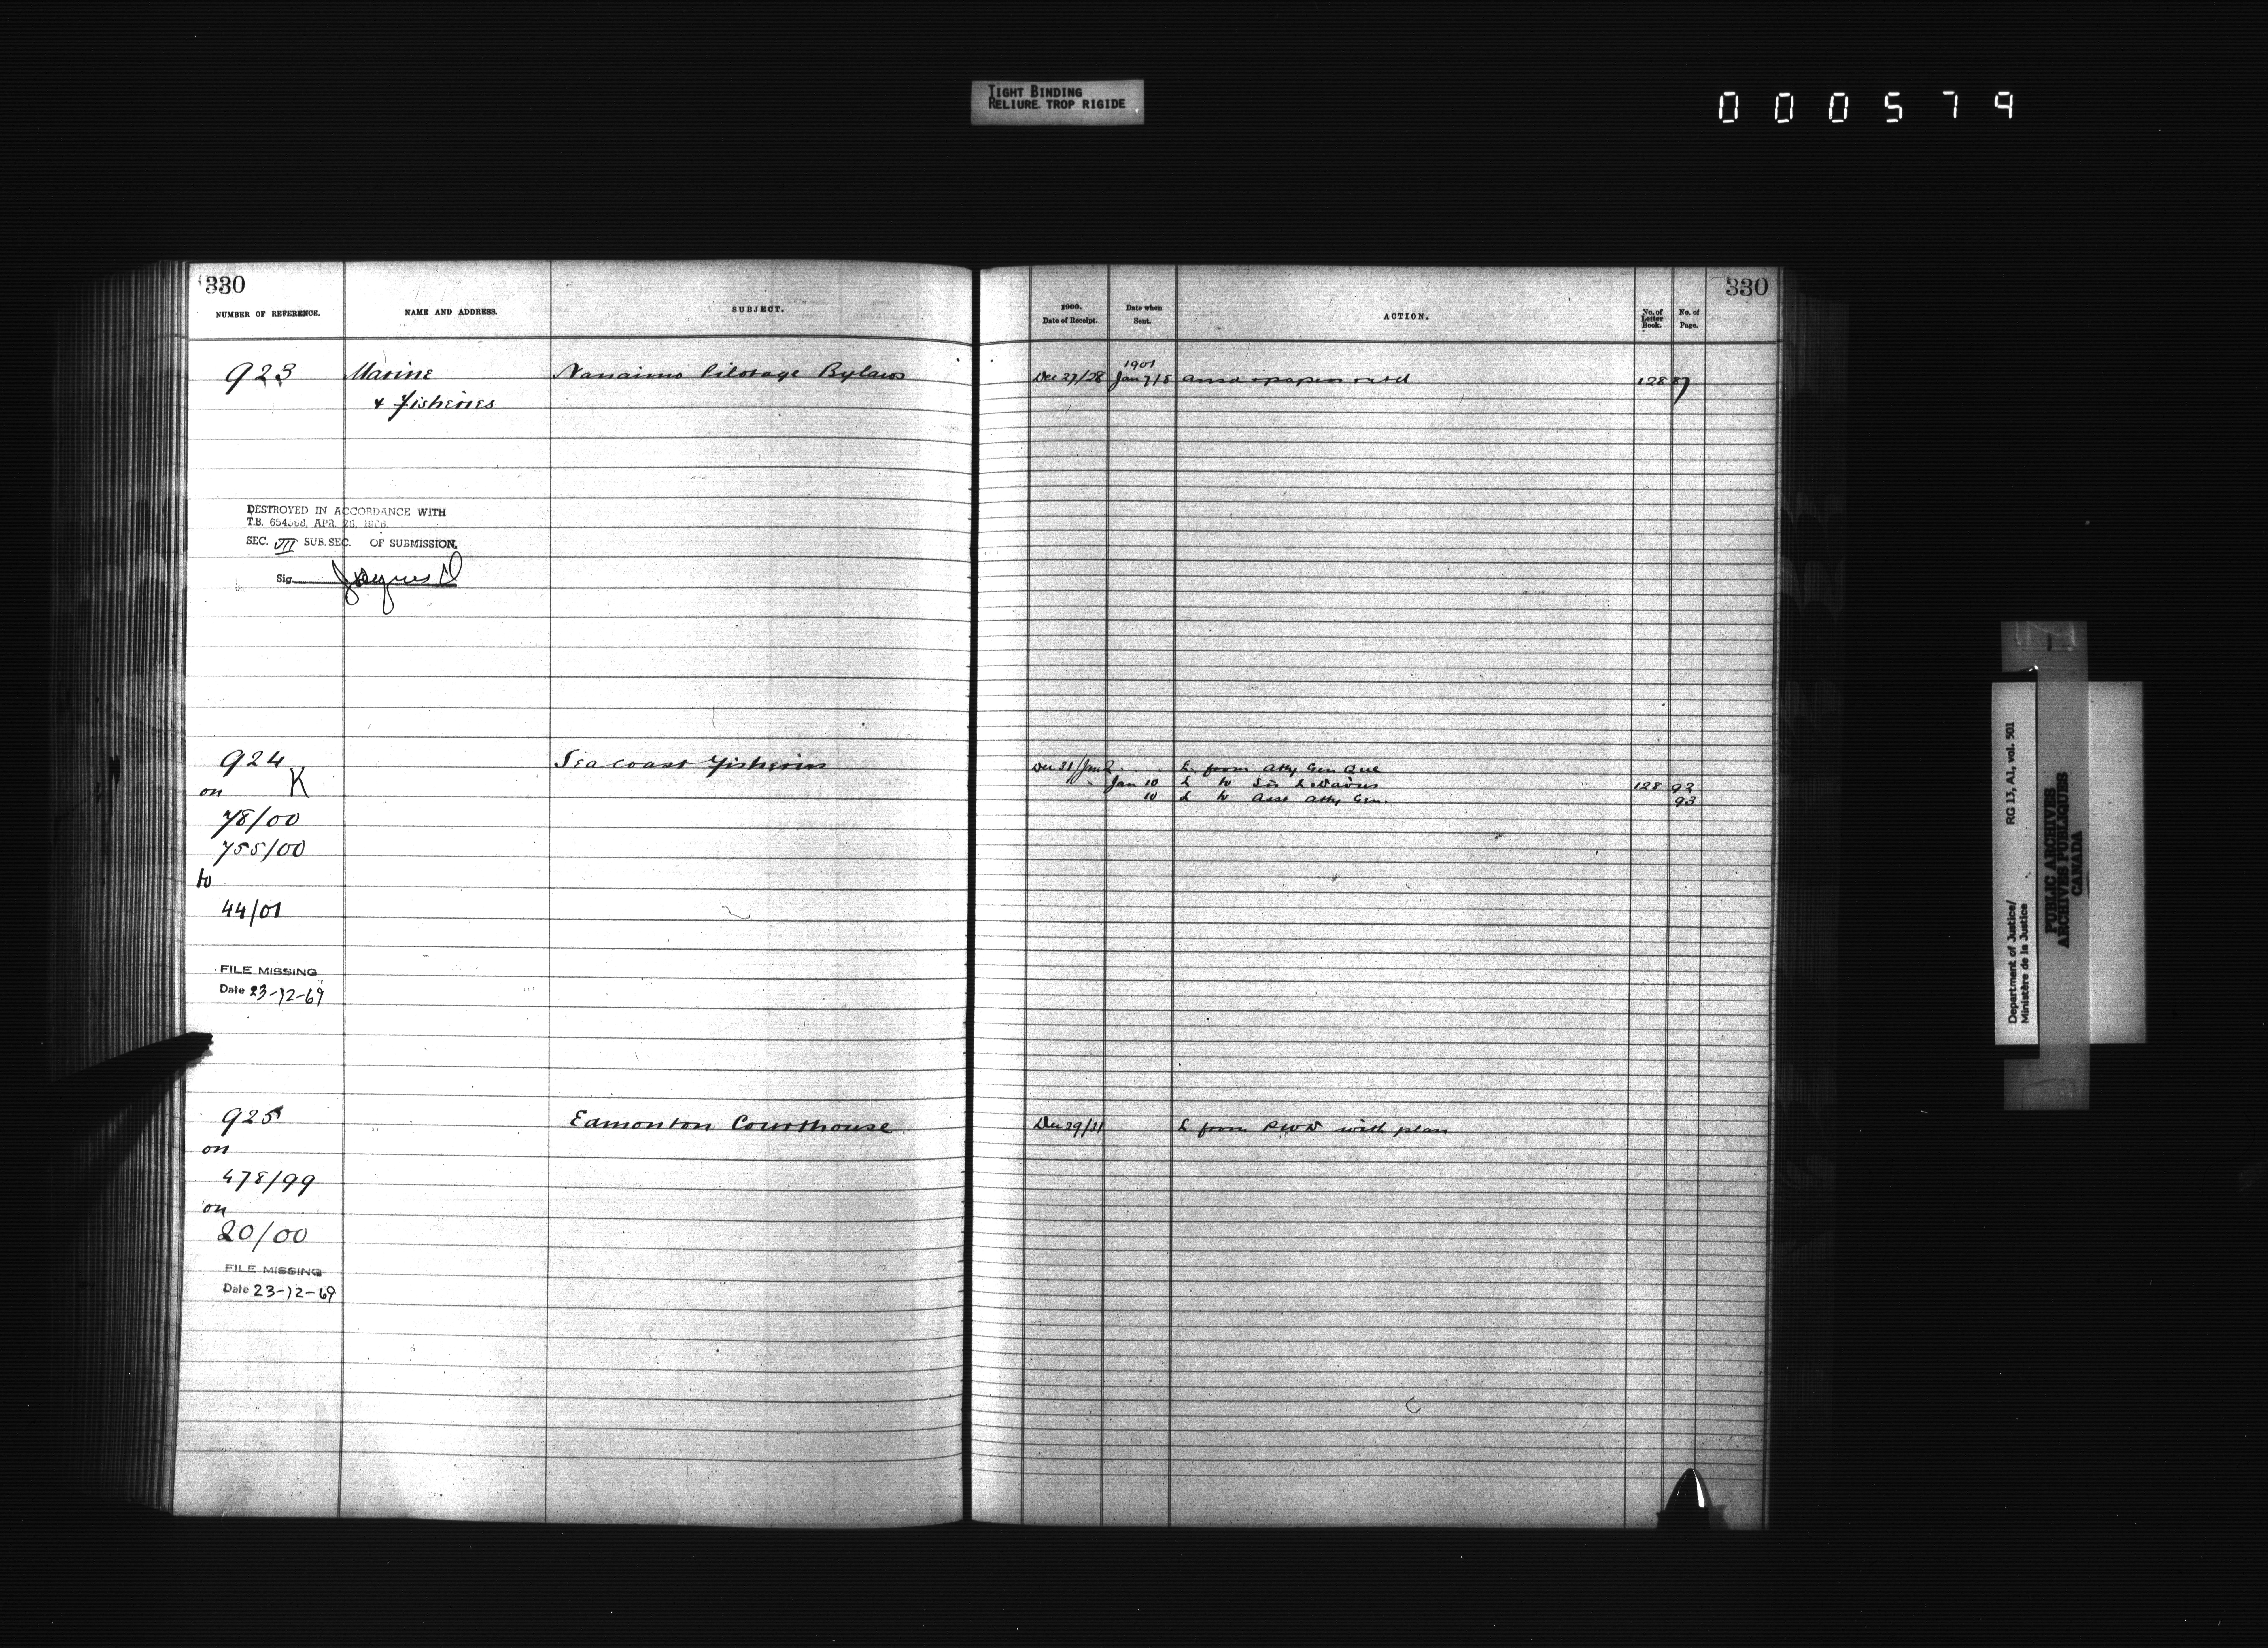 TIGHT BINDING
RELIURE TROP RIGIDE
000579
330
NUMBER OF REFERENCE.
NAME AND ADDRESS.
SUBJECT.
923
Marine
& Fisheries
Nanaimo Pilotage Bylaws
DESTROYED IN ACCORDANCE WITH
T.B. APR. 26,
SEC. VII SUB. SEC. OF SUBMISSION.
Sig.
924
on K
78/00
755/00
to
44/01
Sea coast Fisheries
FILE MISSING
Date 23-12-69
925
on
478/99
on
20/00
Edmonton Courthouse
FILE MISSING
Date 23-12-69
330
1900.
Date of Receipt.
Date when
Sent.
ACTION.
No. of
Letter
Book.
No. of
Page.
1901
Dec 27/28 Jan 7/8 ansd papers retd 128 87
Dec 31/Jan 2 L from Atty Gen Que
Jan 10 L to Sir L Davies 128 92
10 L to Asst Atty Gen. 93
Dec 29/31 L from PWD with plan
Department of Justice/
Ministère de la Justice
RG 13, A1, vol. 501
PUBLIC ARCHIVES
ARCHIVES PUBLIQUES
CANADA